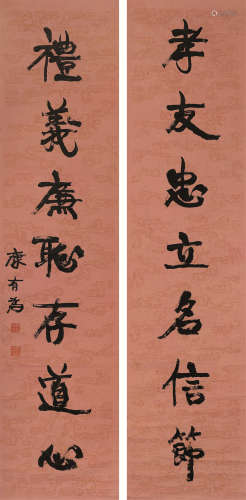 孝友忠立名信節
禮義廉恥存道心
康有為